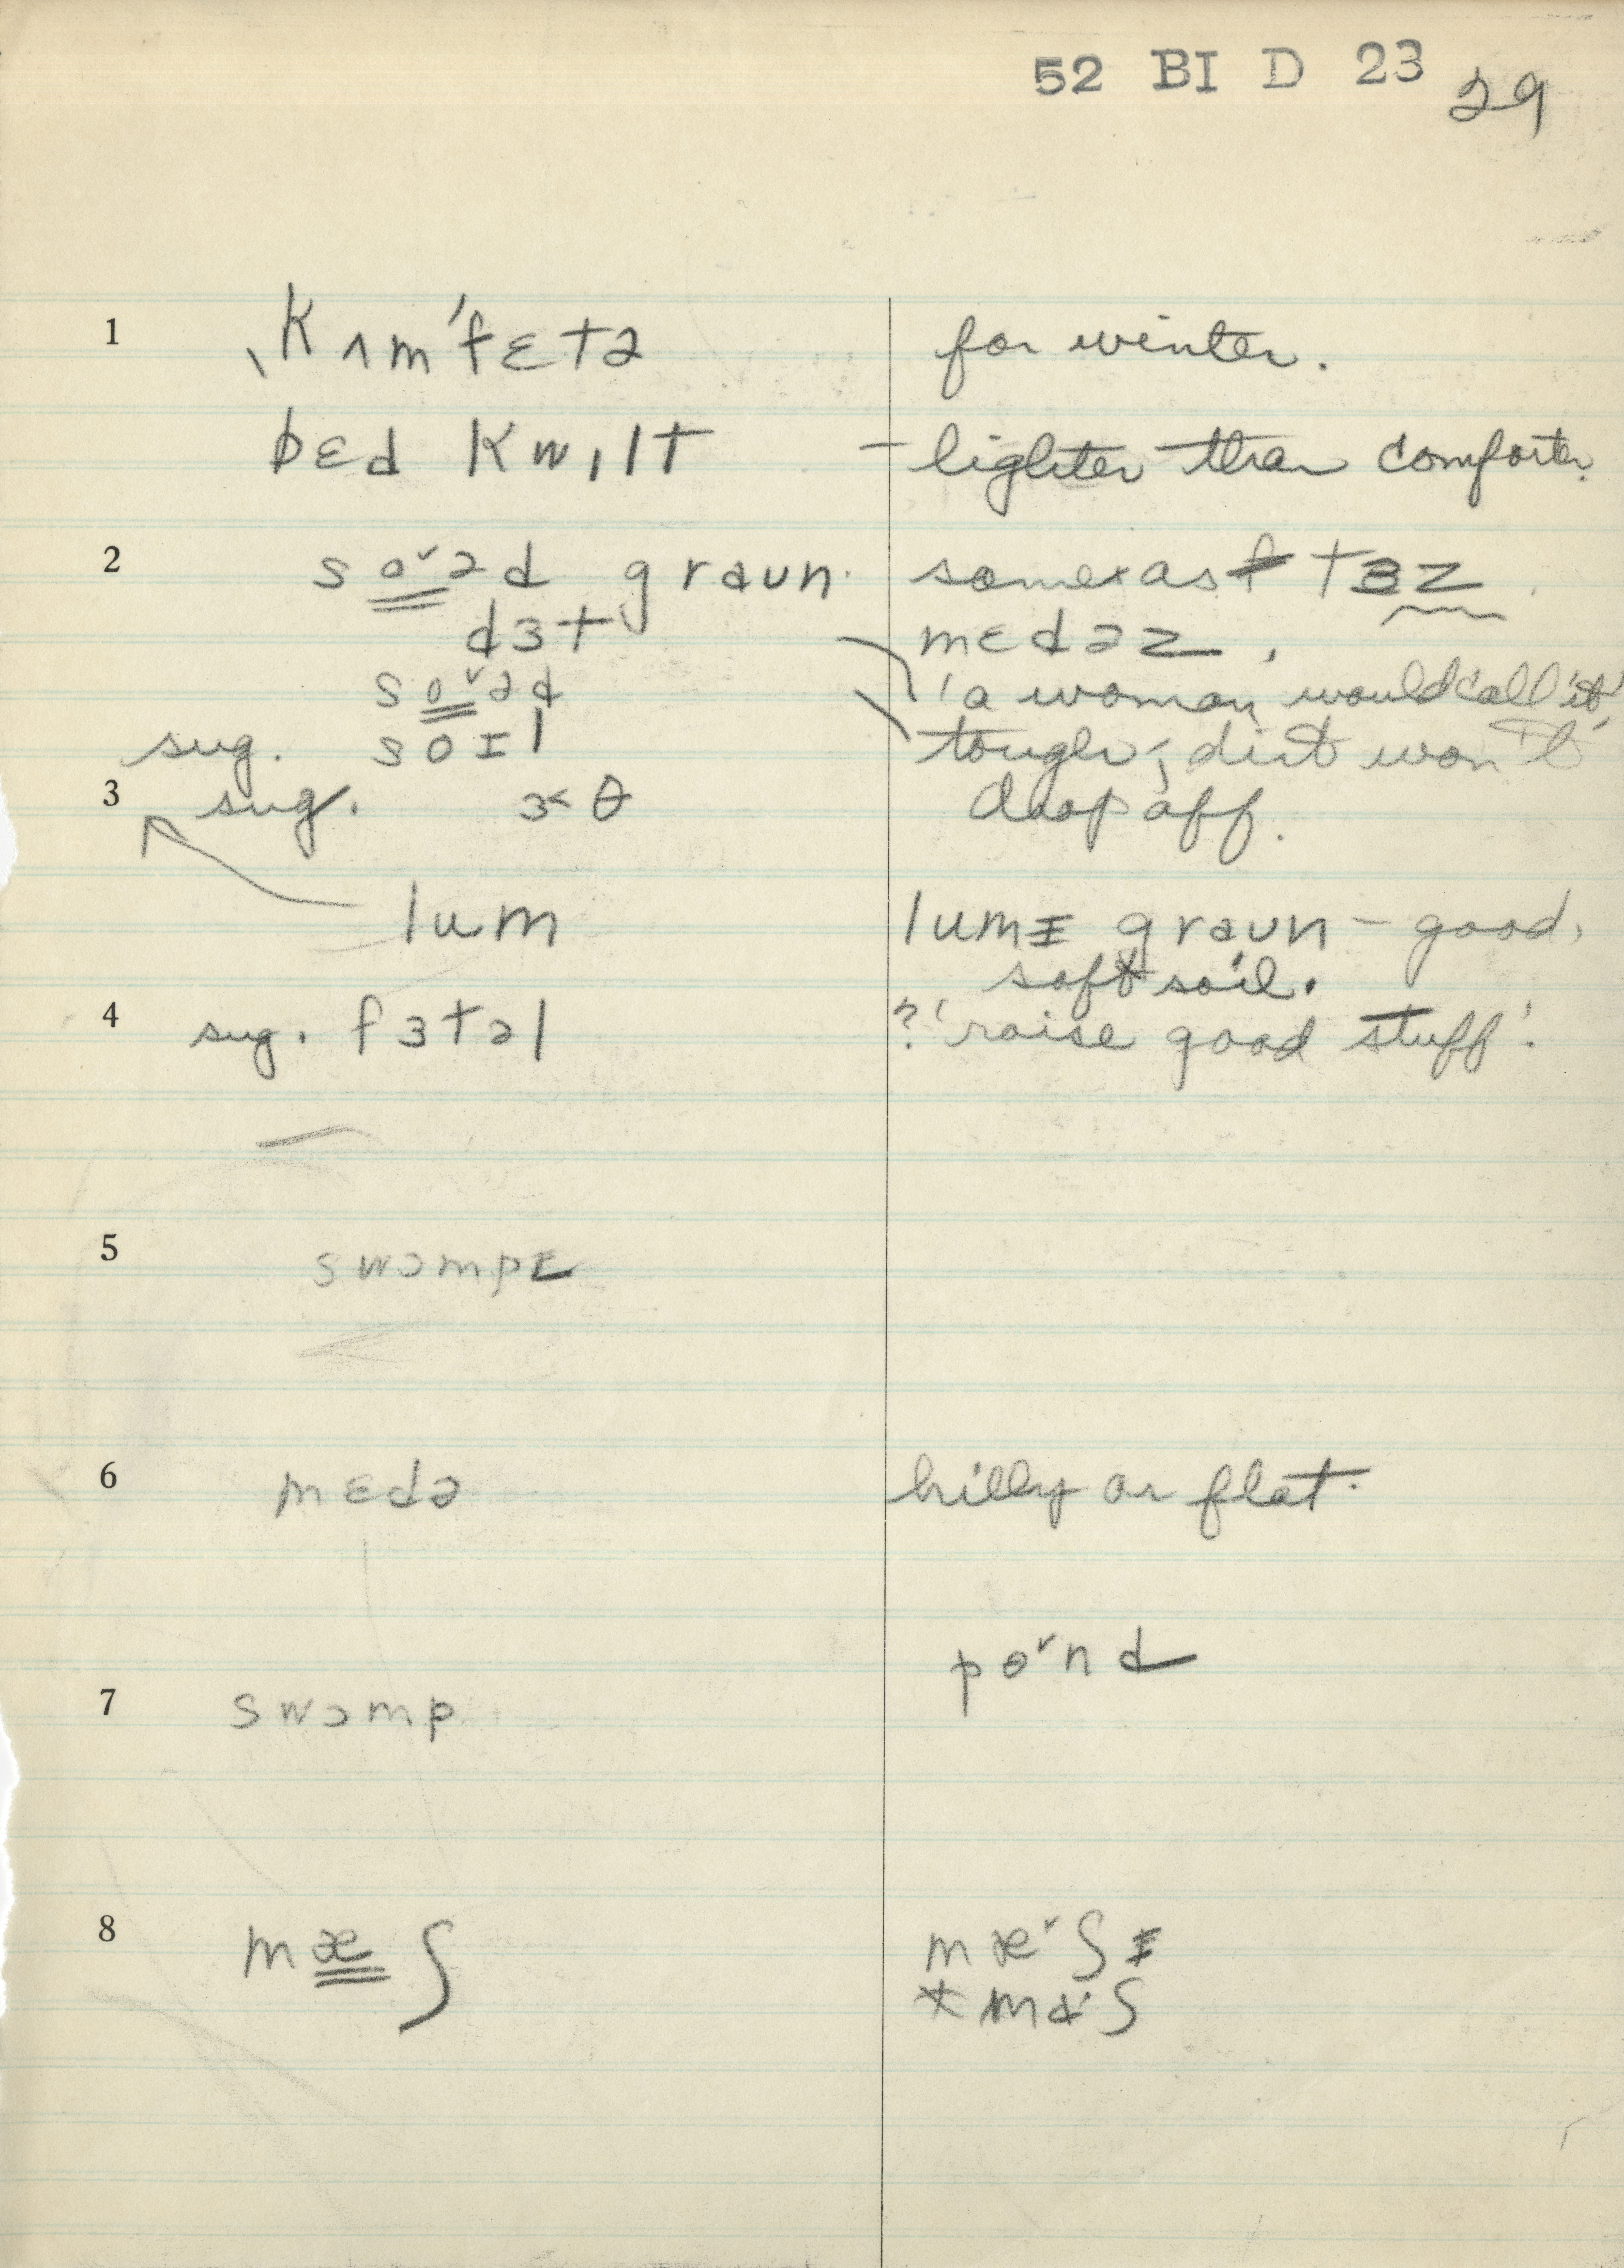 52 BI D 23 29
1 ˎkʌm'fɛtə for winter.
bɛd kwɪlt – lighter than comforter.
2 so˅əd graun. same as tɜz
dɜt mɛdəz.
so˅əd 'a woman would call it'
sug. soɪl tough; dirt won't
3 sug. ɜ˂θ drop off.
lum lumɪ graun – good,
soft soil.
4 sug. fɜtəl ?'raise good stuff'.
5 swɔmpɪ
6 mɛdə hilly or flat.
pɒ˅nd
7 swɔmp
8 mæʃ mæ˅ʃɪ
* mɑ·ʃ